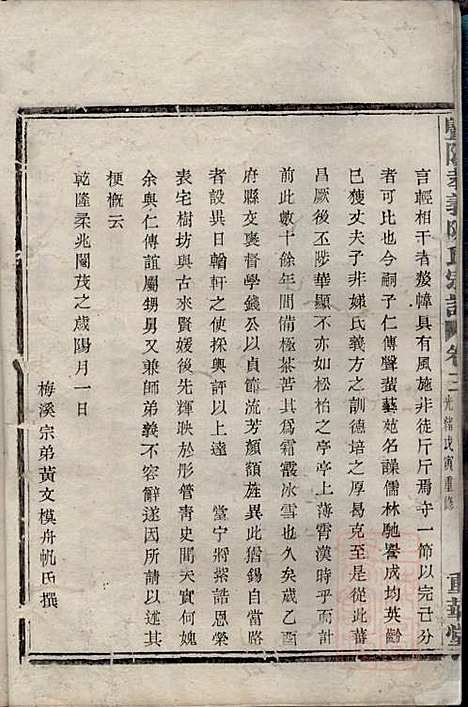 暨陽孝義陳氏宗譜 卷十二 光緒戊寅重修 重華堂
言輕相干者嫠幃具有風施非徒斤斤焉守一節以完己分
者可比也今嗣子仁傳聲蜚藝苑名譟儒林馳譽成均英齡
已獲丈夫子非娣氏義方之訓德培之厚曷克至是從此蕃
昌厥後丕陟華顯不亦如松柏之亭亭上薄霄漢時乎而計
前此數十餘年間備極荼苦其為霜霰冰雪也久矣歲乙酉
府縣交裒督學錢公以貞節流芳顏額旌異此猶錫自當路
者設異日輶軒之使採輿評以上達 堂宁將紫誥恩榮
表宅樹坊與古來賢媛後先輝映於彤管青史間夫實何媿
余與仁傳誼屬甥舅又兼師弟義不容辭遂因所請以述其
梗概云
乾隆柔兆閹茂之歲陽月一日
梅溪宗弟黃文模舟帆氏撰